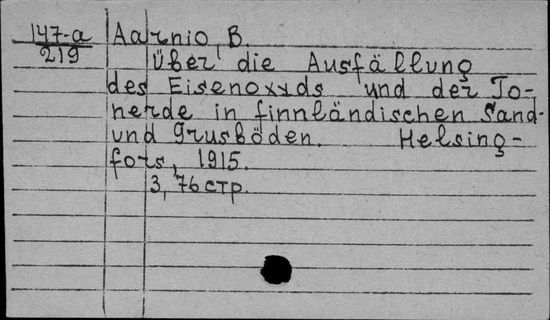 147-a Aarnio, B.
219
Über die Ausfällung
des Eisenoxyds und der To-
nerde in finnländischen Sand-
und Grusböden. Helsing-
fors, 1915.
3, 76 стр.